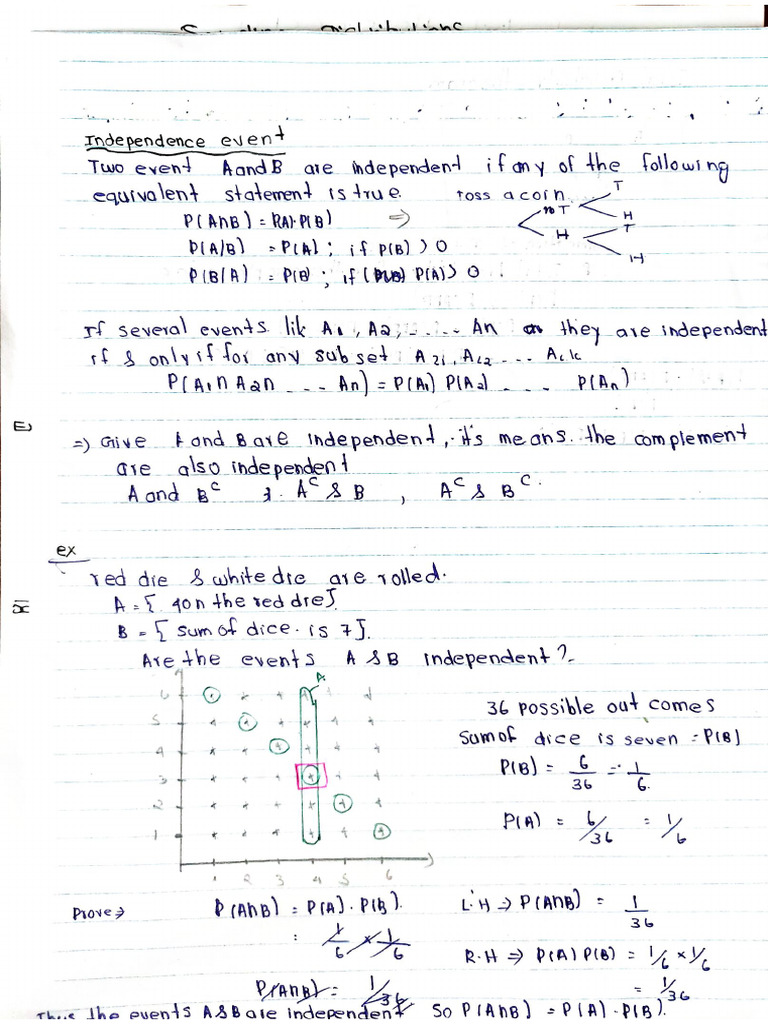 Independence event
Two event A and B are independent if any of the following
equivalent statement is true. Toss a coin
P(A∩B) = P(A)·P(B) ⇒
P(A/B) = P(A) ; if P(B) > 0
P(B/A) = P(B) ; if P(A) > 0
T
T
H
H
T
H
If several events like A1, A2, ..... An they are independent
if & only if for any subset A21, Ai2 ... Aik
P(A1∩ A2∩ ... An) = P(A1) P(A2) .... P(An)
⇒ Give A and B are independent, it's means the complement
are also independent
A and B^c & A^c & B , A^c & B^c.
ex
red die & white die are rolled.
A = { 4 on the red die}
B = { sum of dice is 7}.
Are the events A & B independent?
A
6
5
4
3
2
1
1 2 3 4 5 6
36 possible out comes
Sum of dice is seven = P(B)
P(B) = 6/36 = 1/6.
P(A) = 6/36 = 1/6
Prove ⇒ P(A∩B) = P(A). P(B).
= 1/6 × 1/6
P(A∩B) = 1/36
L.H ⇒ P(A∩B) = 1/36
R.H ⇒ P(A) P(B) = 1/6 × 1/6
= 1/36
Thus the events A & B are independent So P(A∩B) = P(A) · P(B).